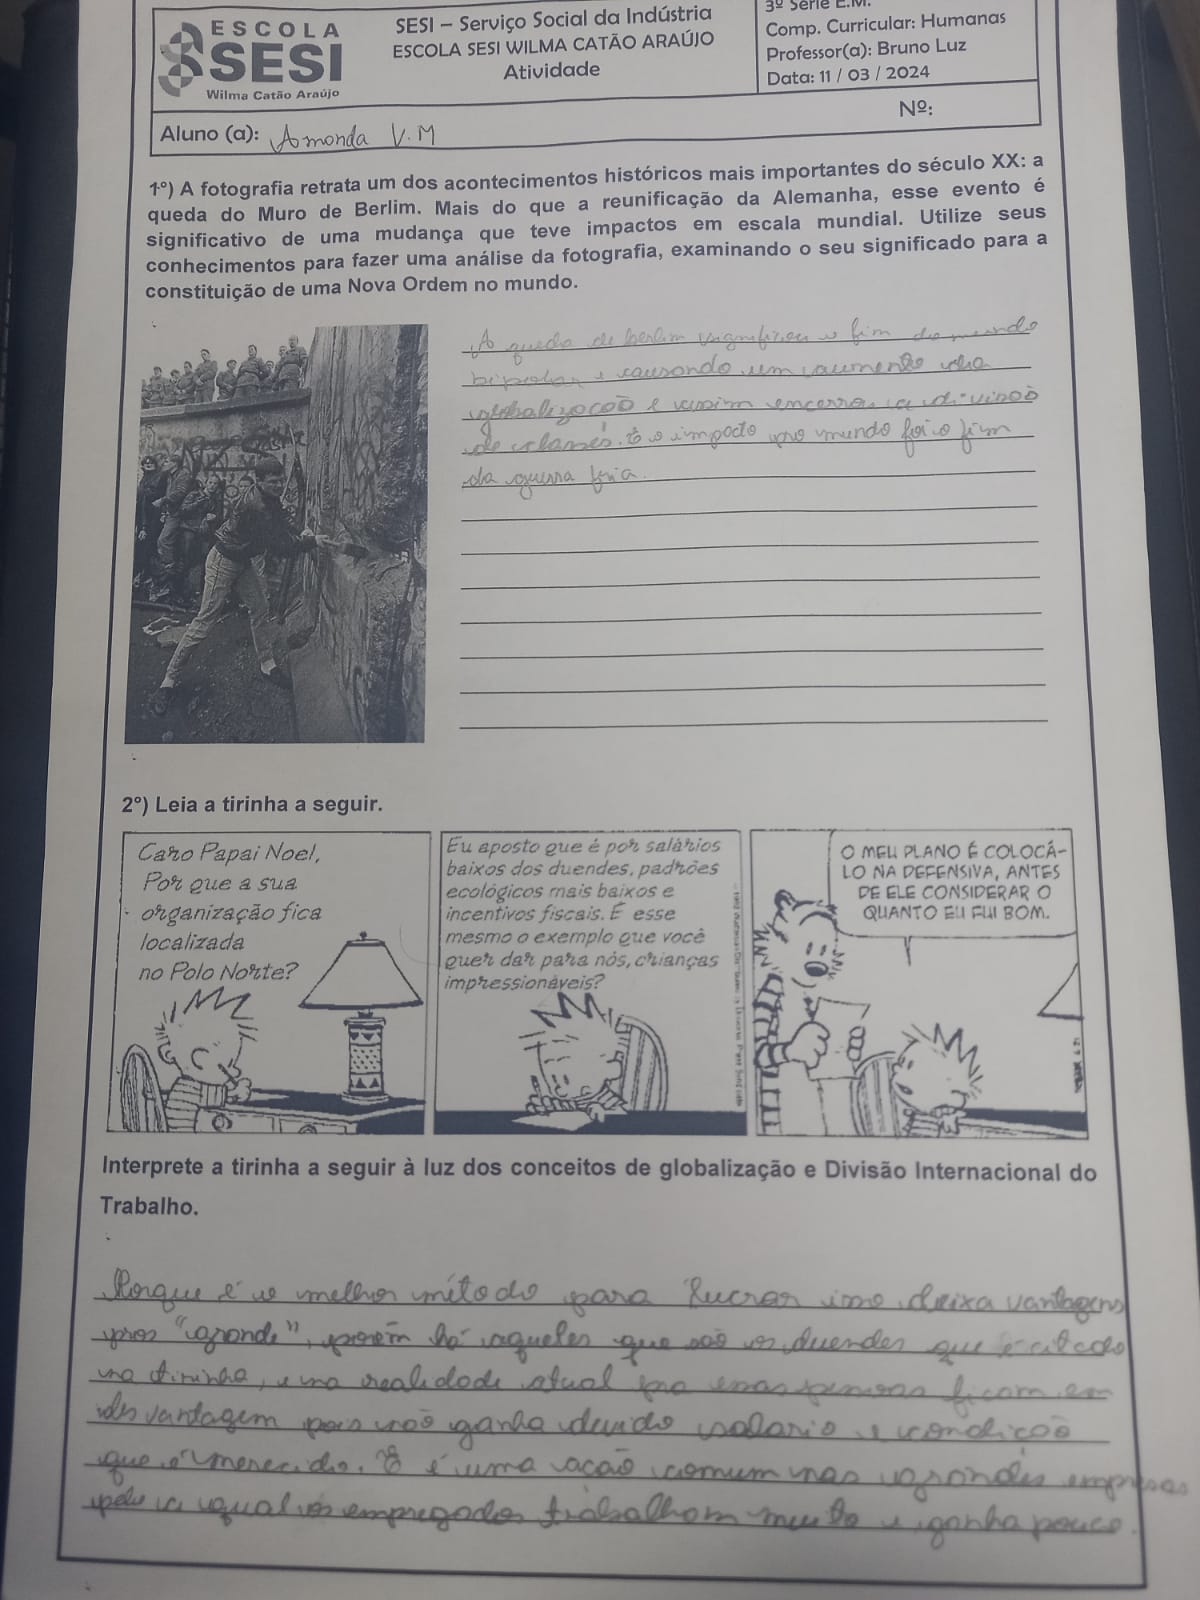 ESCOLA
SESI
Wilma Catão Araújo
SESI – Serviço Social da Indústria
ESCOLA SESI WILMA CATÃO ARAÚJO
Atividade
3º Série E.M.
Comp. Curricular: Humanas
Professor(a): Bruno Luz
Data: 11 / 03 / 2024
Aluno (a): Amanda V.M
Nº:
1º) A fotografia retrata um dos acontecimentos históricos mais importantes do século XX: a
queda do Muro de Berlim. Mais do que a reunificação da Alemanha, esse evento é
significativo de uma mudança que teve impactos em escala mundial. Utilize seus
conhecimentos para fazer uma análise da fotografia, examinando o seu significado para a
constituição de uma Nova Ordem no mundo.
A queda de berlim significou o fim do mundo
bipolar e causando um aumento da
globalização e assim encerrou a divisão
de classes. E o impacto pro mundo foi o fim
da guerra fria.
2º) Leia a tirinha a seguir.
Caro Papai Noel,
Por que a sua
organização fica
localizada
no Polo Norte?
Eu aposto que é por salários
baixos dos duendes, padrões
ecológicos mais baixos e
incentivos fiscais. É esse
mesmo o exemplo que você
quer dar para nós, crianças
impressionáveis?
O MEU PLANO É COLOCÁ-
LO NA DEFENSIVA, ANTES
DE ELE CONSIDERAR O
QUANTO EU FUI BOM.
Interprete a tirinha a seguir à luz dos conceitos de globalização e Divisão Internacional do
Trabalho.
Porque é o melhor método para lucrar isso deixa vantagens
pros "grande", porém há aqueles que são os duendes que é citado
na tirinha, e na realidade atual essas pessoas ficam em
desvantagem pois não ganha devido salario e condição
que é merecido. E é uma ação comum nas grandes empresas
pelo a qual os empregados trabalham muito e ganha pouco.